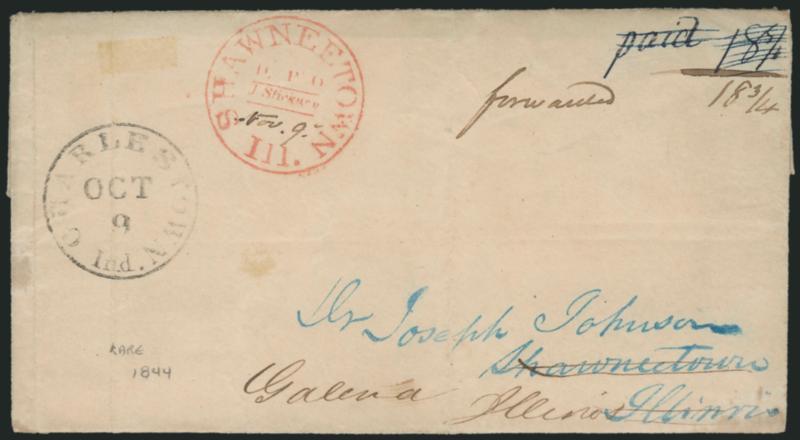 paid 18 3/4
forwarded 18 3/4
SHAWNEETOWN
P. O
Nov. 9.
Ill.
CHARLESTOWN. Ind
OCT
9
Dr Joseph Johnson
Shawneetown
Galena Illinois Illinois
RARE
1844